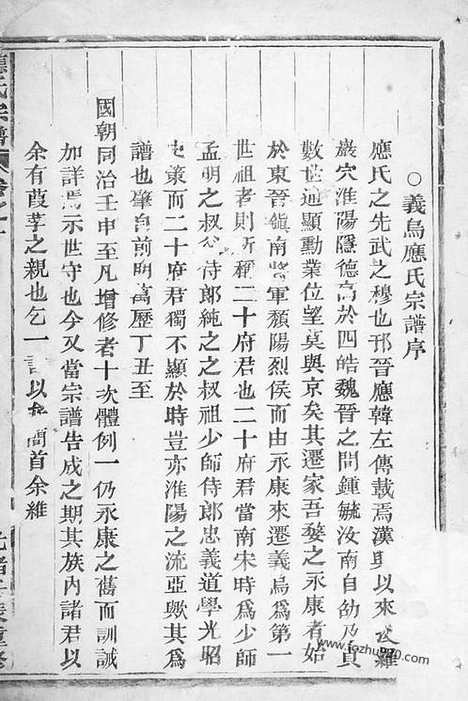 ○義烏應氏宗譜序
應氏之先武之穆也邘晉應韓左傳載焉漢興以來羅
巖穴淮陽隱德高於四皓魏晉之間鍾毓汝南自劭乃貞
數世通顯勳業位望莫與京矣其遷家吾婺之永康者始
於東晉鎮南將軍頹陽烈侯而由永康來遷義烏爲第一
世祖者則所稱二十府君也二十府君當南宋時爲少師
孟明之叔父侍郎純之之叔祖少師侍郎忠義道學光昭
史策而二十府君獨不顯於時豈亦淮陽之流亞歟其爲
譜也肇自前明萬歷丁丑至
國朝同治壬申至凡增修者十次體例一仍永康之舊而訓誡
加詳焉示世守也今又當宗譜告成之期其族內諸君以
余有葭莩之親也乞一言以弁簡首余維
應氏宗譜
光緒
重修
www.fozhu920.com